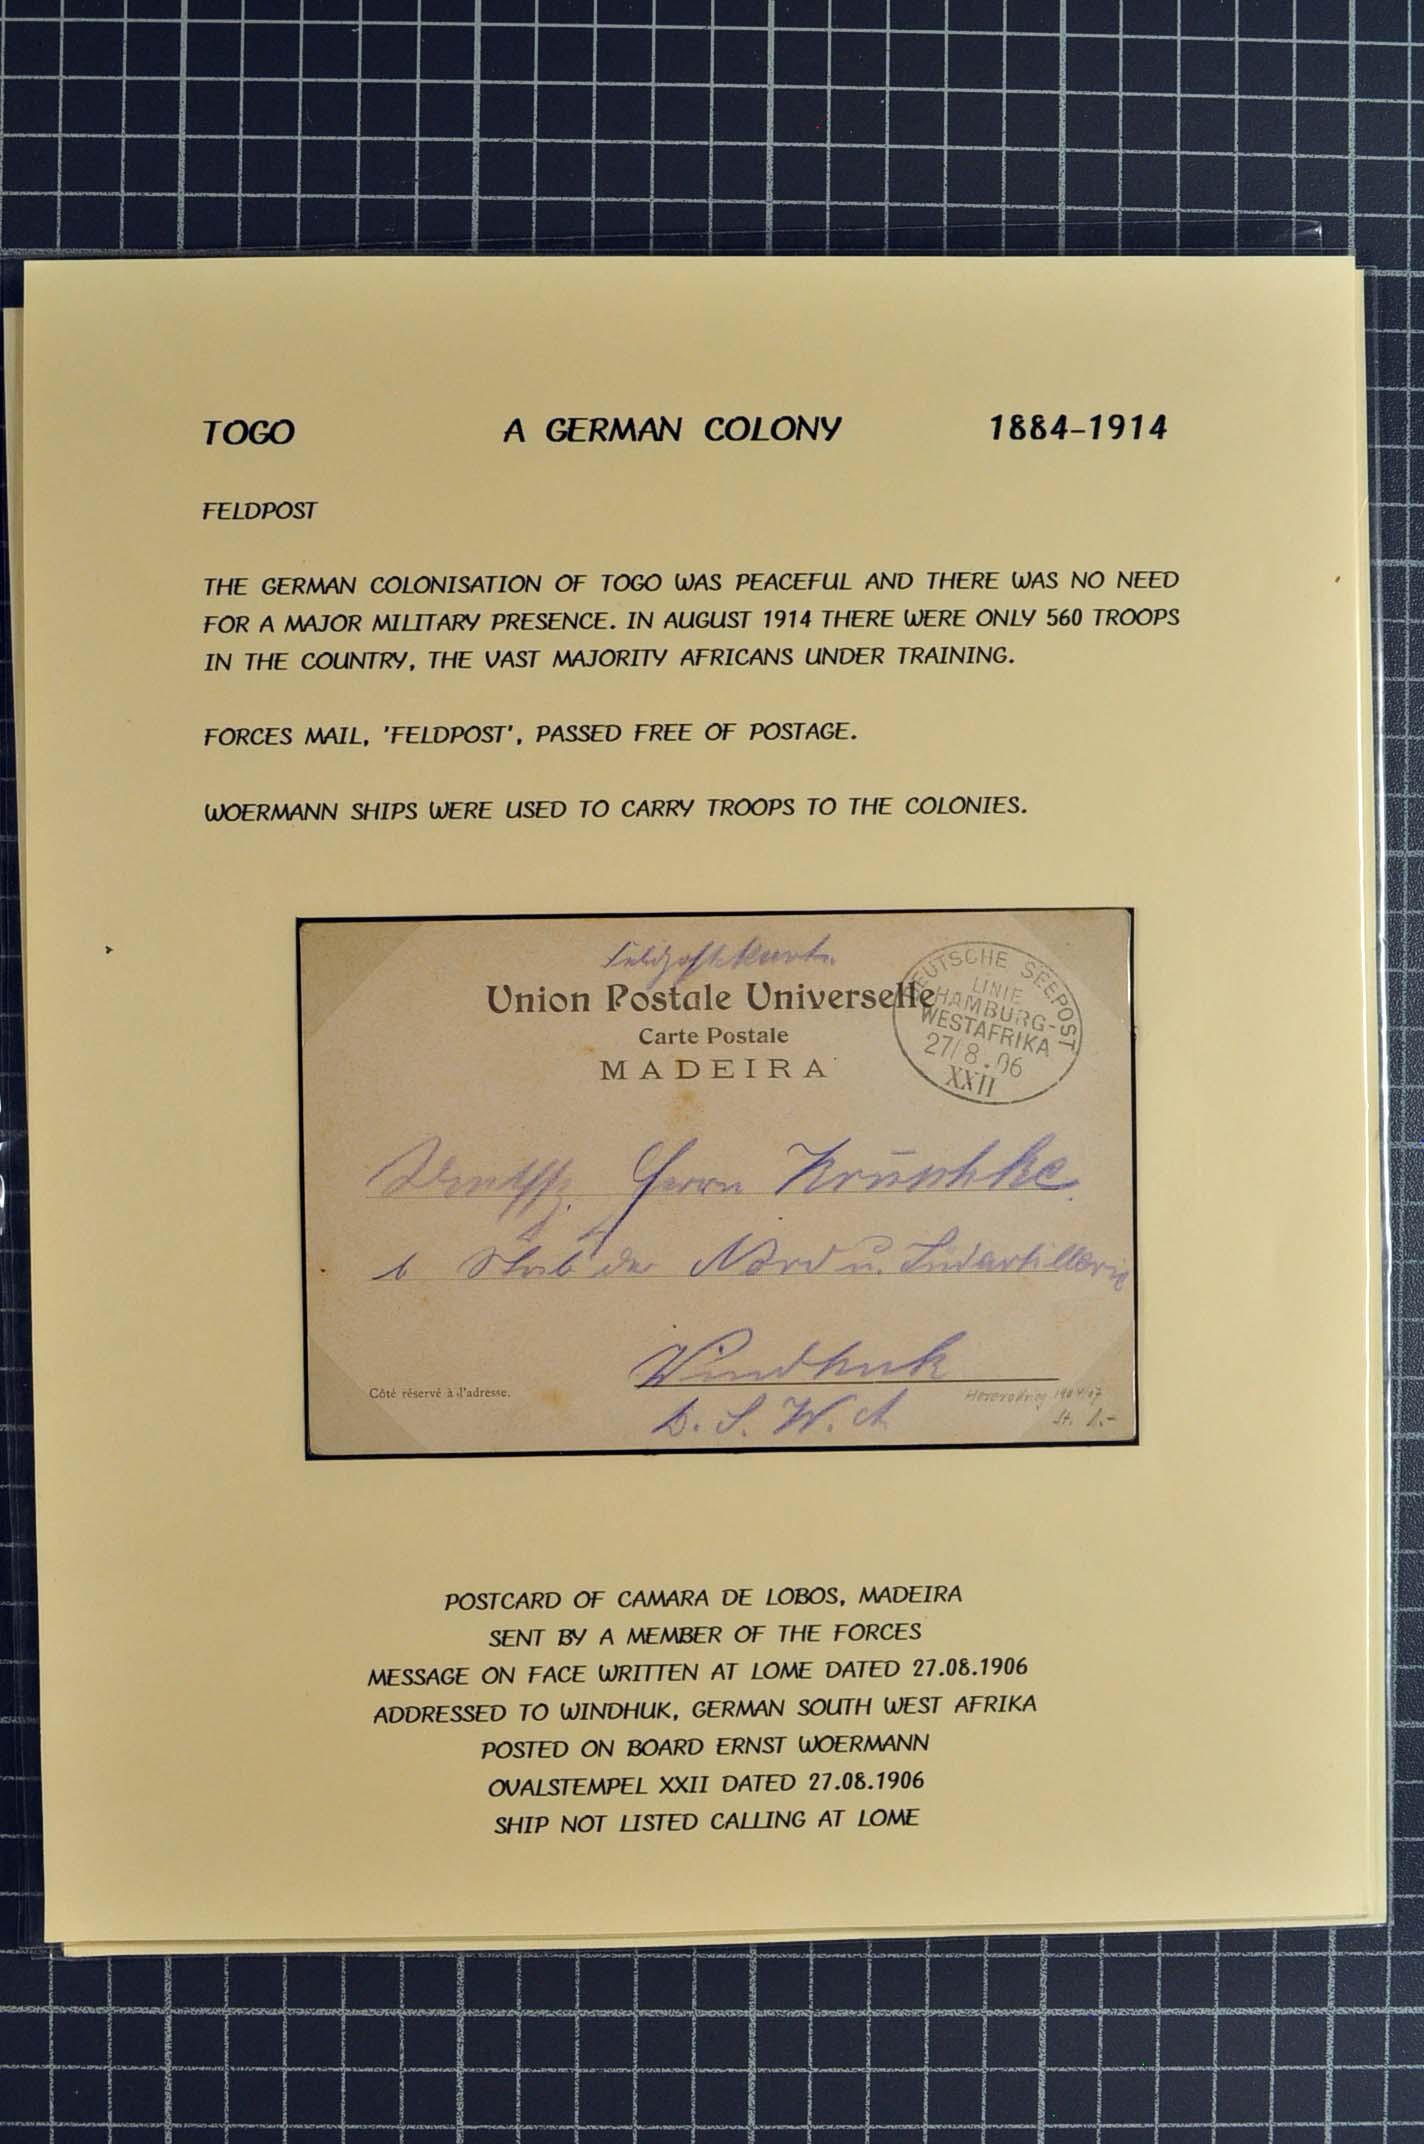 TOGO A GERMAN COLONY 1884-1914
FELDPOST
THE GERMAN COLONISATION OF TOGO WAS PEACEFUL AND THERE WAS NO NEED
FOR A MAJOR MILITARY PRESENCE. IN AUGUST 1914 THERE WERE ONLY 560 TROOPS
IN THE COUNTRY, THE VAST MAJORITY AFRICANS UNDER TRAINING.
FORCES MAIL, 'FELDPOST', PASSED FREE OF POSTAGE.
WOERMANN SHIPS WERE USED TO CARRY TROOPS TO THE COLONIES.
Feldpostkarte
Union Postale Universelle
Carte Postale
MADEIRA
DEUTSCHE SEEPOST
LINIE
HAMBURG-
WESTAFRIKA
27/8.06
XXII
Herrn
b Stab der Nord u. Südartillerie
Windhuk
D. S. W. A
Côté réservé à d'adresse.
Hererokrieg 1904/07
POSTCARD OF CAMARA DE LOBOS, MADEIRA
SENT BY A MEMBER OF THE FORCES
MESSAGE ON FACE WRITTEN AT LOME DATED 27.08.1906
ADDRESSED TO WINDHUK, GERMAN SOUTH WEST AFRIKA
POSTED ON BOARD ERNST WOERMANN
OVALSTEMPEL XXII DATED 27.08.1906
SHIP NOT LISTED CALLING AT LOME